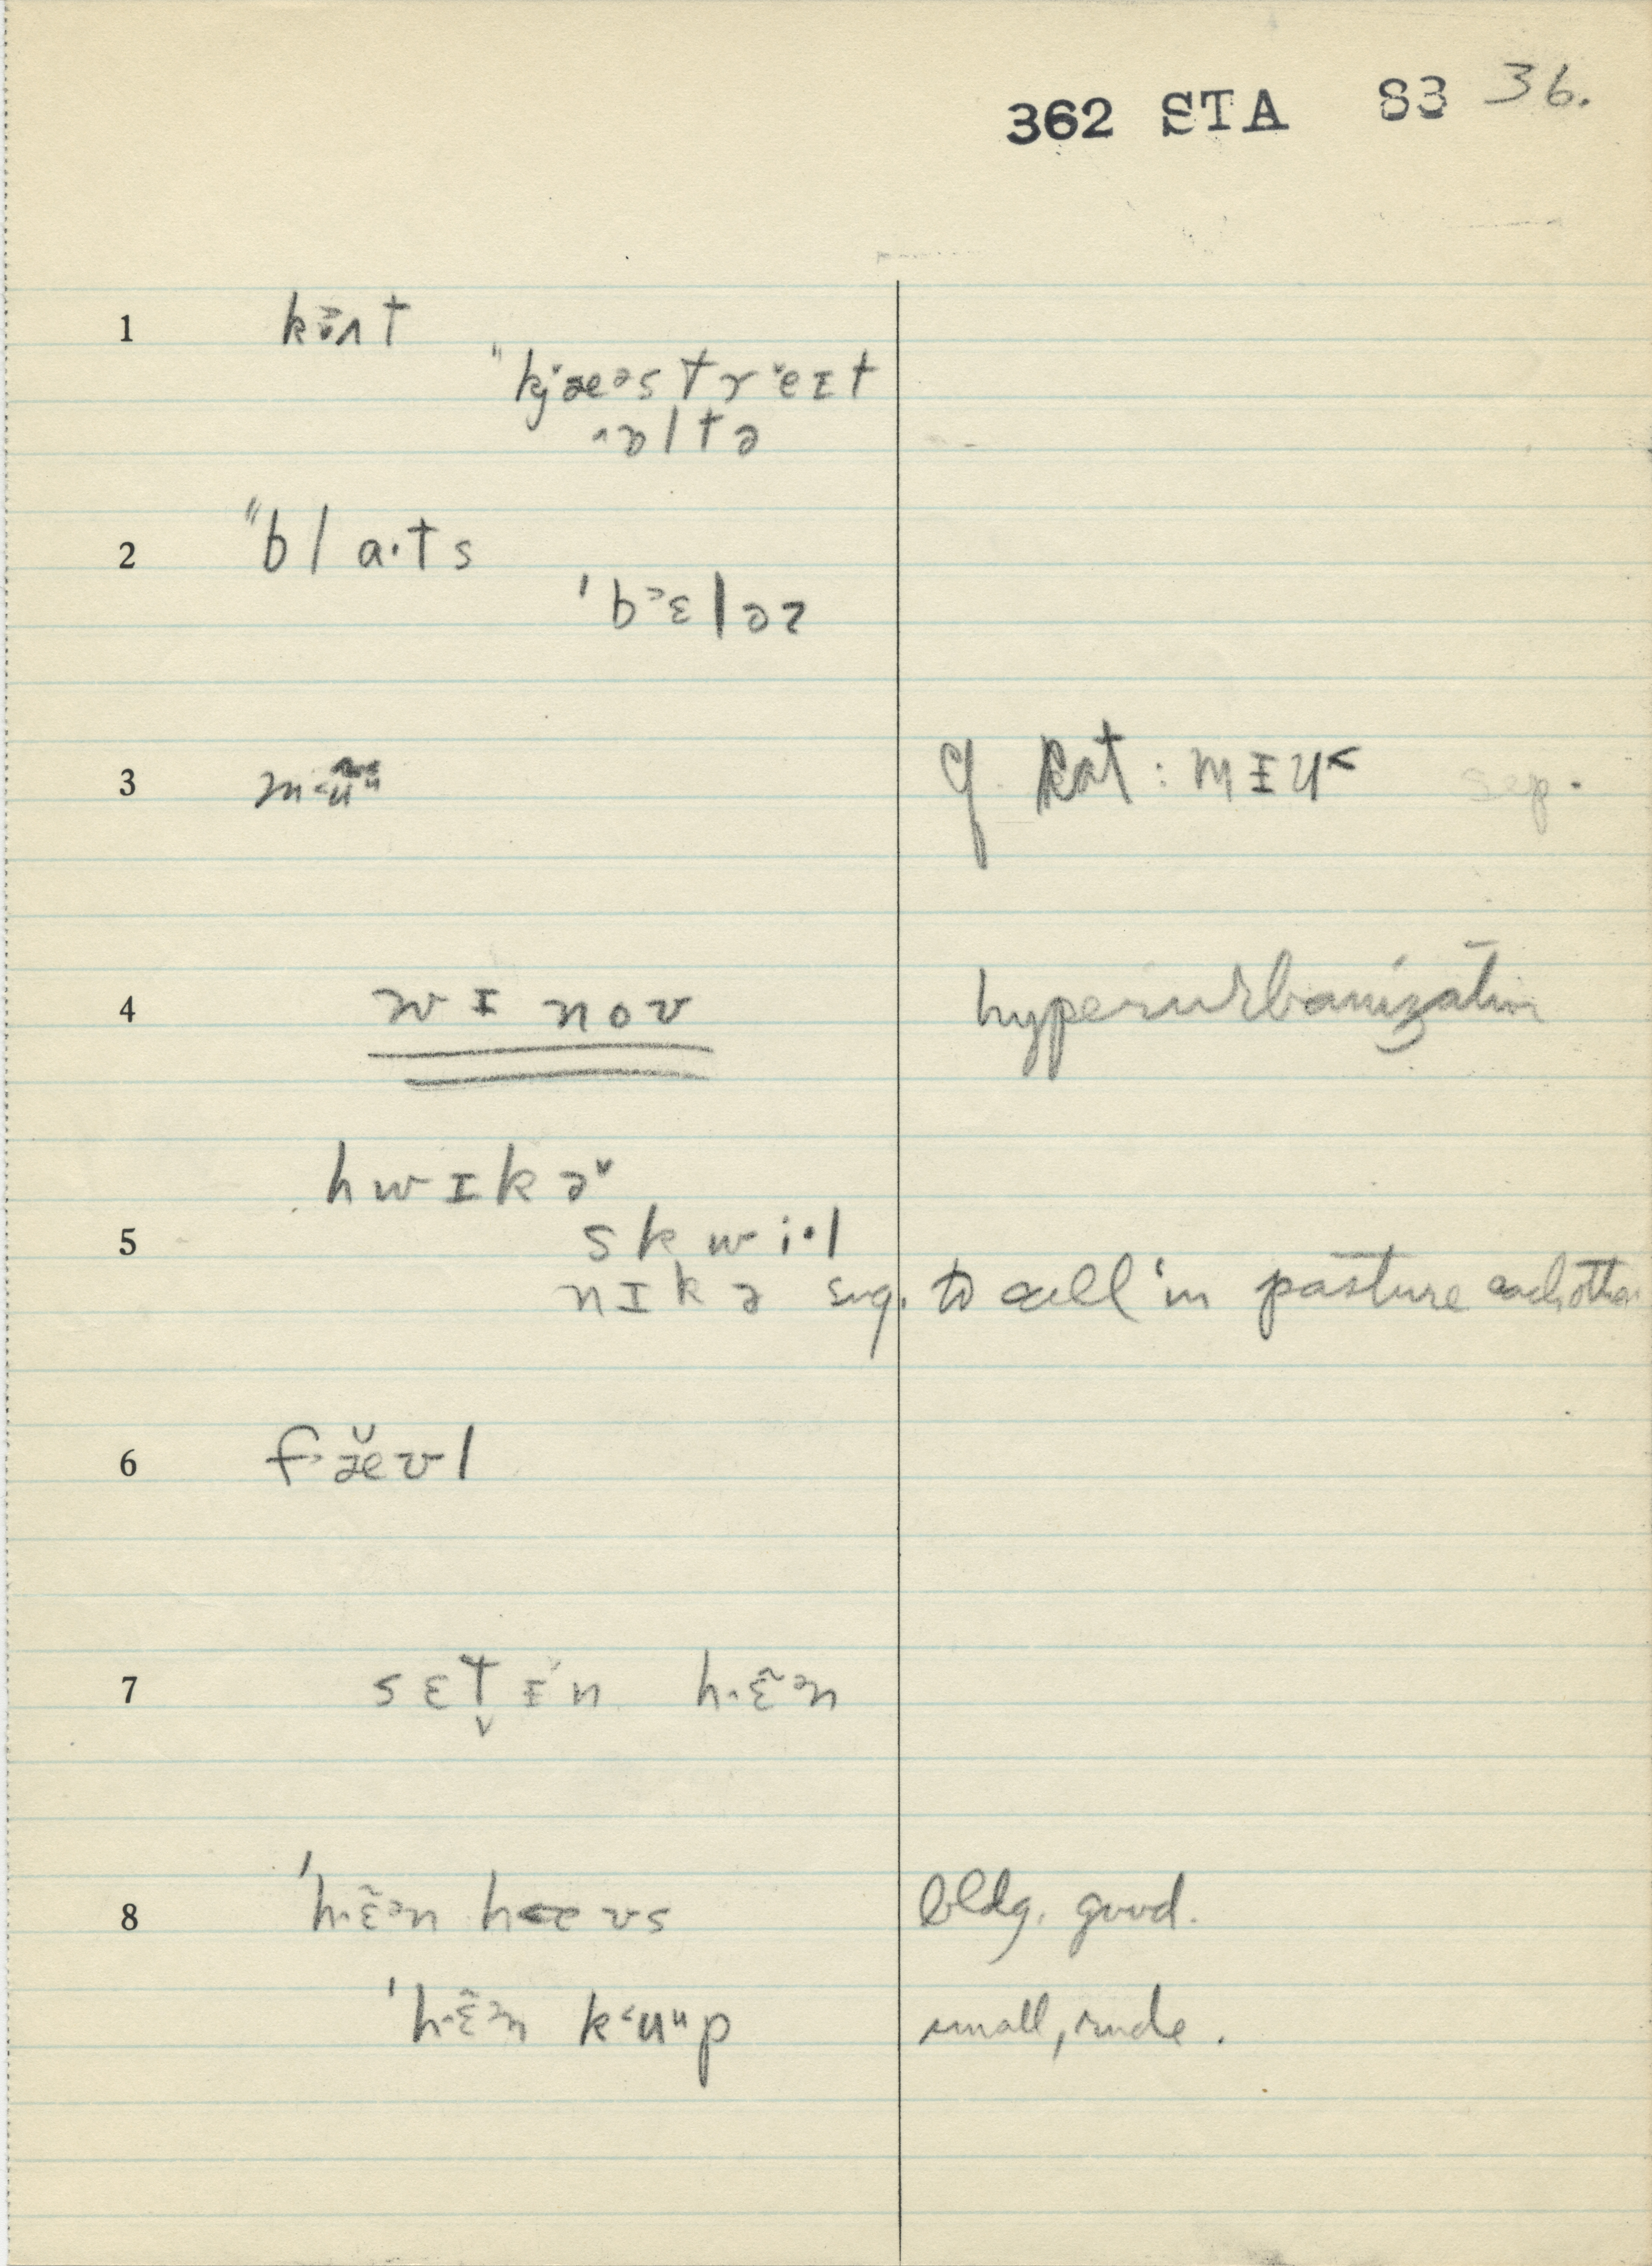 362 STA 83 36.
1 kɜʌt
"kj̆æəstr̆eɪt
ɒltə
2 "bla·ts
'bɛləz
3 cf. Cat: mɪu˂ sep.
4 wɪnov hyperurbanization
hwɪkə˅
5 skwi·l
nɪkə sug. to call in pasture each other
6 fæ̆vl
7 sɛt̬ɪn h·ɛ̃ən
8 'h·ɛ̃ən hæʊs bldg. good.
'h·ɛ̃ən k˂uᵘp small, rude.